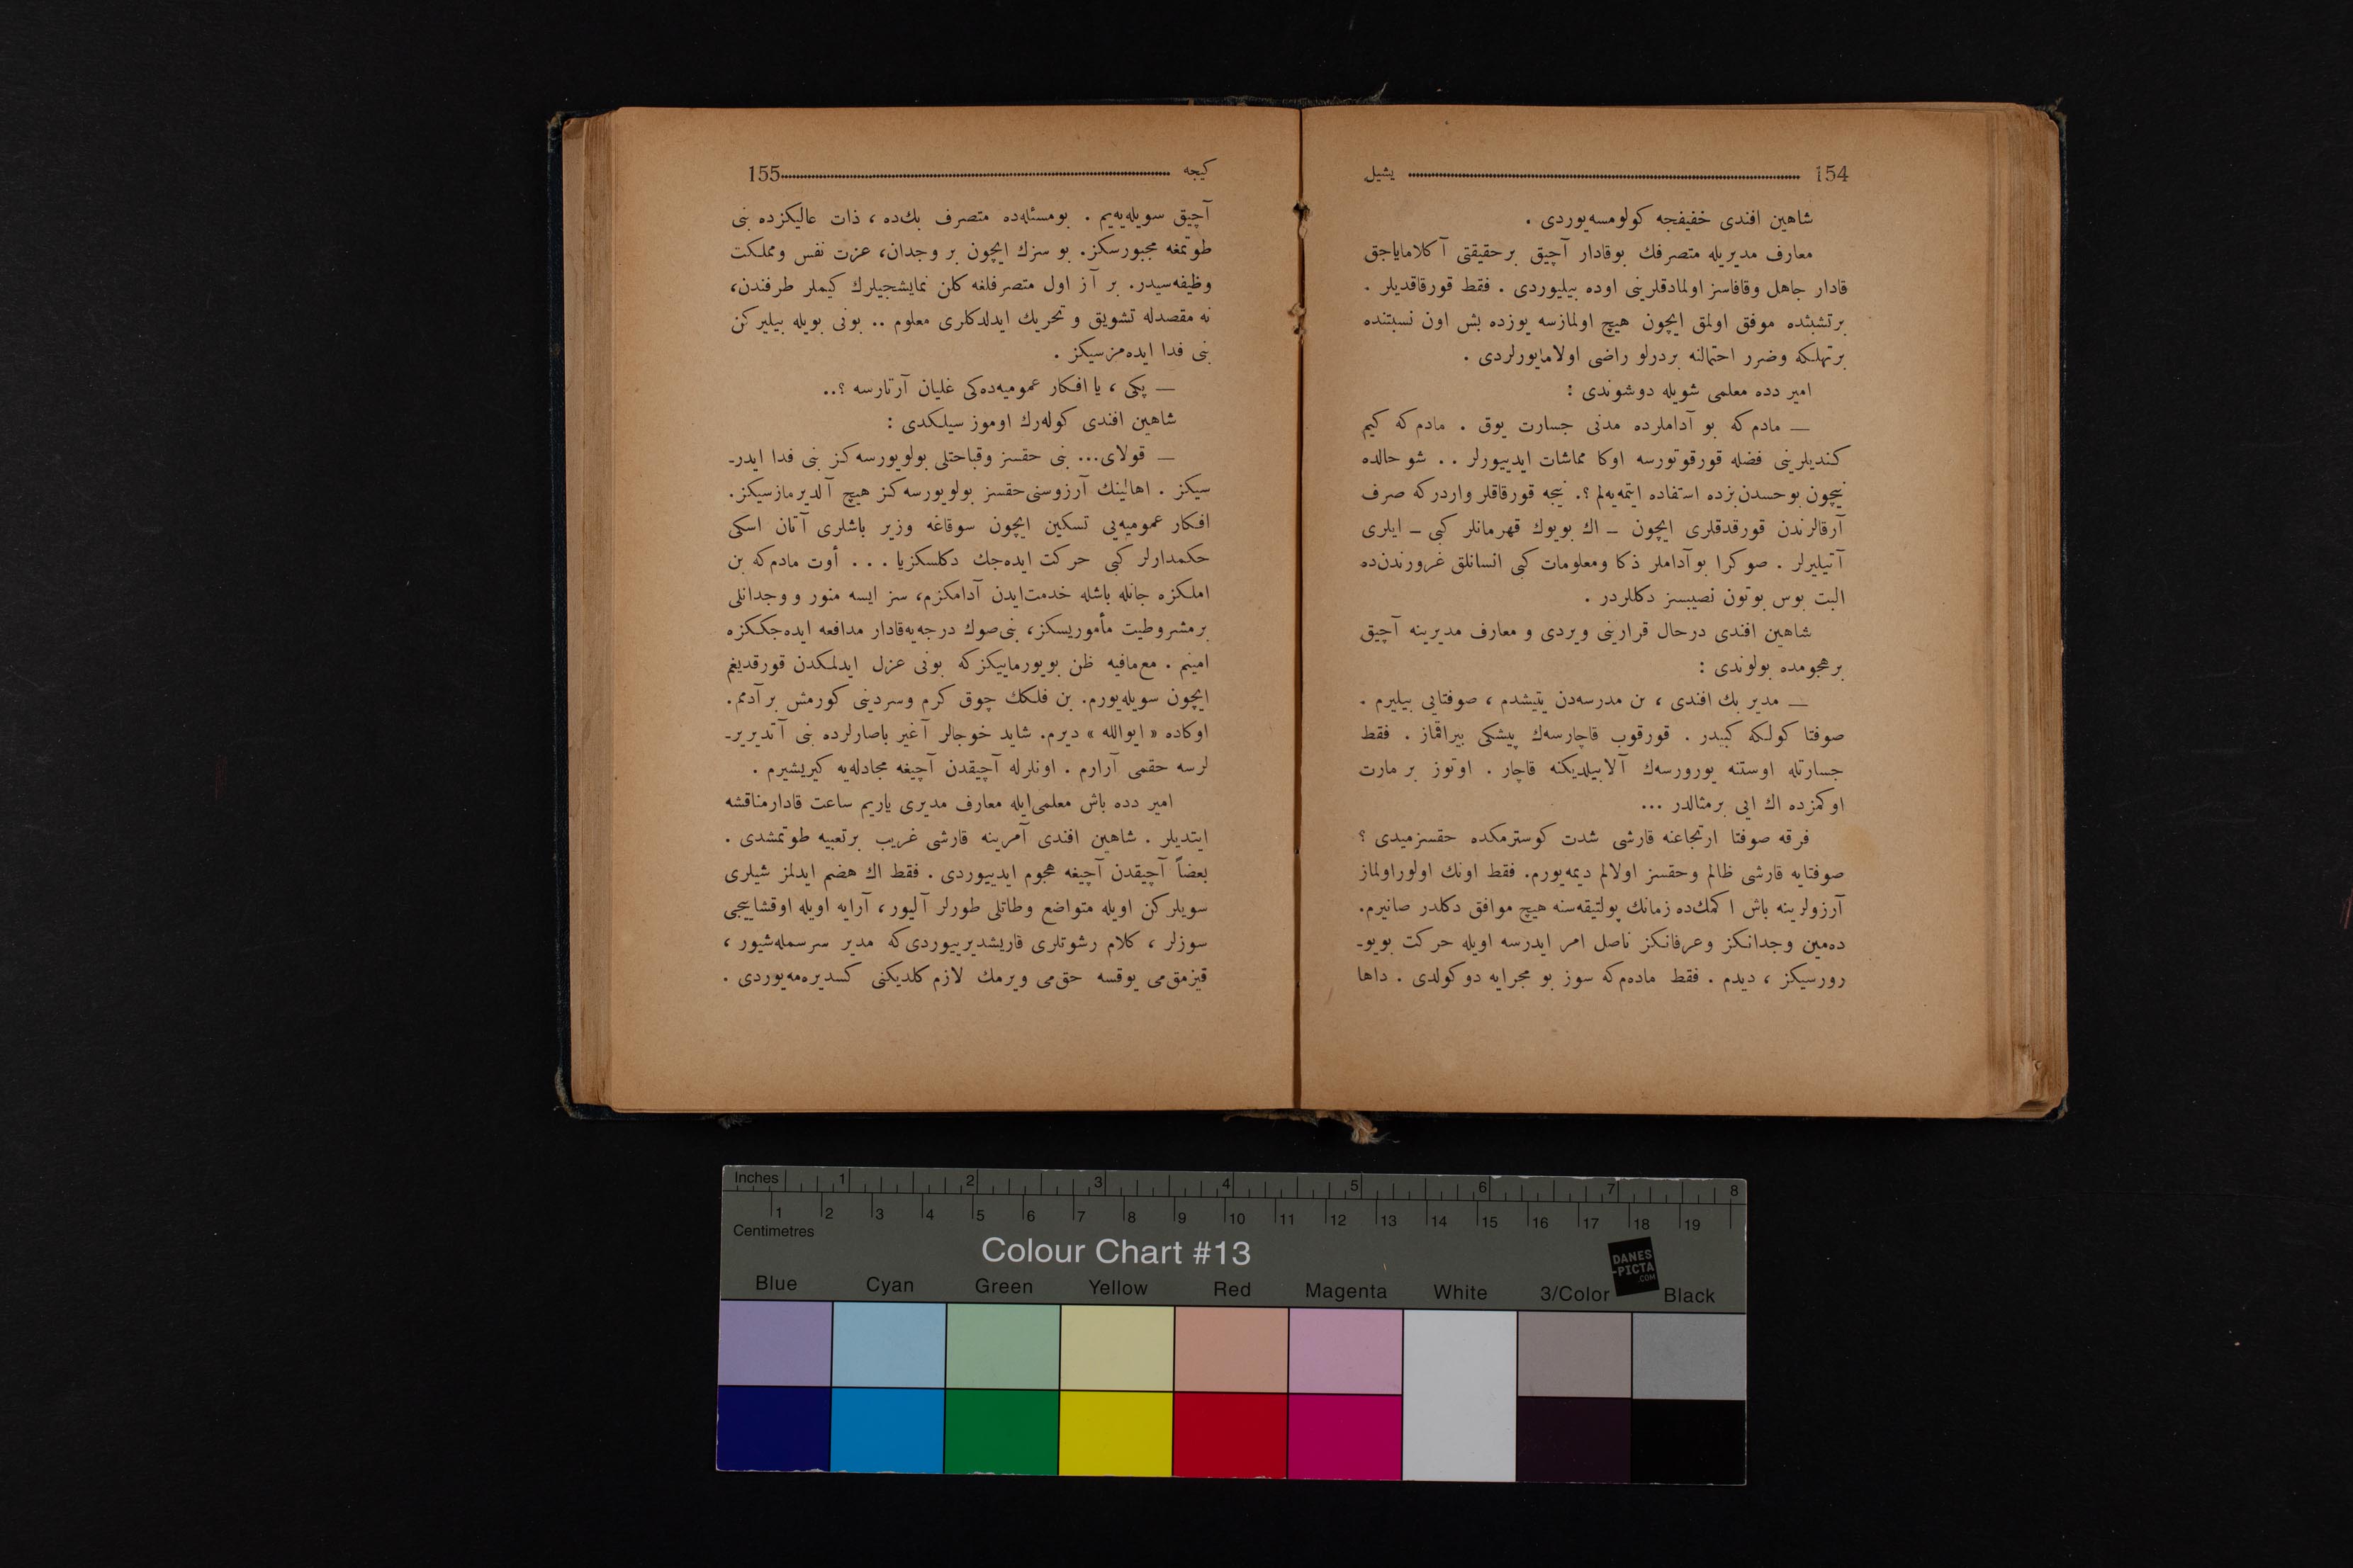 154 یشیل
شاهین افندی خفیفجه كولومسه‌یوردی .
معارف مدیریله متصرفك بوقادار آچیق برحقیقتی آ كلامایاجق
قادار جاهل وقافاسز اولمادقلرینی اوده بیلیوردی . فقط قورقاقدیلر .
برتشبثده موفق اولمق ایچون هیچ اولمازسه یوزده بش اون نسبتنده
برتهلكه وضرر احتمالنه بردرلو راضی اولامایورلردی .
امیر دده معلمی شویله دوشوندی :
— مادم كه بو آداملرده مدنی جسارت یوق . مادم كه كیم
كندیلرینی فضله قورقوتورسه اوكا مماشات ایدییورلر . . شو حالده
نیچون بوحسدن بزده استفاده ایتمه‌یه‌لم ؟. نیجه قورقاقلر واردركه صرف
آرقالرندن قورقدقلری ایچون ـ اك بویوك قهرمانلر كبی ـ ایلری
آتیلیرلر . صوكرا بوآداملر ذكا ومعلومات كبی انسانلق غرورندن‌ده
البت بوس بوتون نصیبسز دكللردر .
شاهین افندی درحال قرارینی ویردی و معارف مدیرینه آچیق
برهجومده بولوندی :
— مدیر بك افندی ، بن مدرسه‌دن یتیشدم ، صوفتایی بیلیرم .
صوفتا كولكه كبیدر . قورقوب قاچارسه‌ك پیشكی بیراقماز . فقط
جسارتله اوستنه یورورسه‌ك آلابیلدیكنه قاچار . اوتوز بر مارت
اوكمزده اك ایی برمثالدر ...
فرقه صوفتا ارتجاعنه قارشی شدت كوسترمكده حقسزمیدی ؟
صوفتایه قارشی ظالم وحقسز اولالم دیمه‌یورم. فقط اونك اولوراولماز
آرزولرینه باش ا كمك‌ده زمانك پولتیقه‌سنه هیچ موافق دكلدر صانیرم.
ده‌مین وجدانكز وعرفانكز ناصل امر ایدرسه اویله حركت بویو-
رورسیكز ، دیدم . فقط ماده‌م‌كه سوز بو مجرایه دوكولدی . داها
كیجه 155
آچیق سویله‌یه‌یم . بومسئله‌ده متصرف بك‌ده ، ذات عالیكزده بنی
طوتمغه مجبورسكز. بو سزك ایچون بر وجدان، عزت نفس ومملكت
وظیفه‌سیدر. بر آز اول متصرفلغه كلن نمایشجیلرك كیملر طرفندن،
نه مقصدله تشویق و تحریك ایدلدكلری معلوم .. بونی بویله بیلیركن
بنی فدا ایده‌مزسیكز .
— پكی ، یا افكار عمومیه‌ده‌كی غلیان آرتارسه ؟..
شاهین افندی كوله‌رك اوموز سیلكدی :
— قولای... بنی حقسز وقباحتلی بولویورسه‌كز بنی فدا ایدر-
سیكز . اهالینك آرزوسنی حقسز بولویورسه‌كز هیچ آلدیرمازسیكز.
افكار عمومیه‌یی تسكین ایچون سوقاغه وزیر باشلری آتان اسكی
حكمدارلر كبی حركت ایده‌جك دكلسكزیا . . . أوت مادم‌كه بن
املكزه جانله باشله خدمت‌ایدن آدامكزم، سز ایسه منور و وجدانلی
برمشروطیت مأموریسكز، بنی‌صوك درجه‌یه‌قادار مدافعه ایده‌جككزه
امینم . مع‌مافیه ظن بویورماییكزكه بونی عزل ایدلمكدن قورقدیغم
ایچون سویله‌یورم. بن فلكك چوق كرم وسردینی كورمش برآدمم.
اوكاده « ایوالله » دیرم. شاید خوجالر آغیر باصارلرده بنی آتدیریر-
لرسه حقمی آرارم . اونلرله آچیقدن آچیغه مجادله‌یه كیریشیرم .
امیر دده باش معلمی‌ایله معارف مدیری یاریم ساعت قادارمناقشه
ایتدیلر . شاهین افندی آمرینه قارشی غریب برتعبیه طوتمشدی .
بعضاً آچیقدن آچیغه هجوم ایدییوردی . فقط اك هضم ایدلمز شیلری
سویلركن اویله متواضع وطاتلی طورلر آلیور، آرایه اویله اوقشاییجی
سوزلر ، كلام رشوتلری قاریشدیرییوردی‌كه مدیر سرسمله‌شیور ،
قیزمق‌می یوقسه حق‌می ویرمك لازم كلدیكنی كسدیره‌مه‌یوردی .
Inches 1 2 3 4 5 6 7 8
1 2 3 4 5 6 7 8 9 10 11 12 13 14 15 16 17 18 19
Centimetres
Colour Chart #13
DANES
-PICTA
.COM
Blue Cyan Green Yellow Red Magenta White 3/Color Black